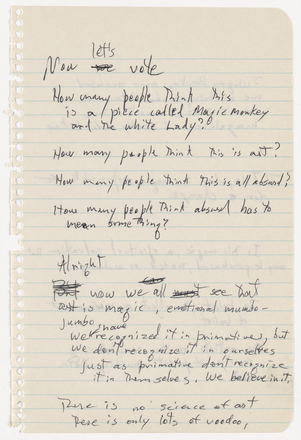 let's
Now we vote
How many people think this
is a piece called Magic Monkey
and the white Lady?
How many people think this is art?
How many people think this is all absurd?
How many people think absurd has to
mean something?
Alright
now we all see that
art is magic, emotional mumbo-
jumbo
have
we recognized it in primative, but
we don't recognize it in ourselves
Just as primative don't recognize
it in themselves, We believe in it.
There is no science of art
There is only lots of voodoo,